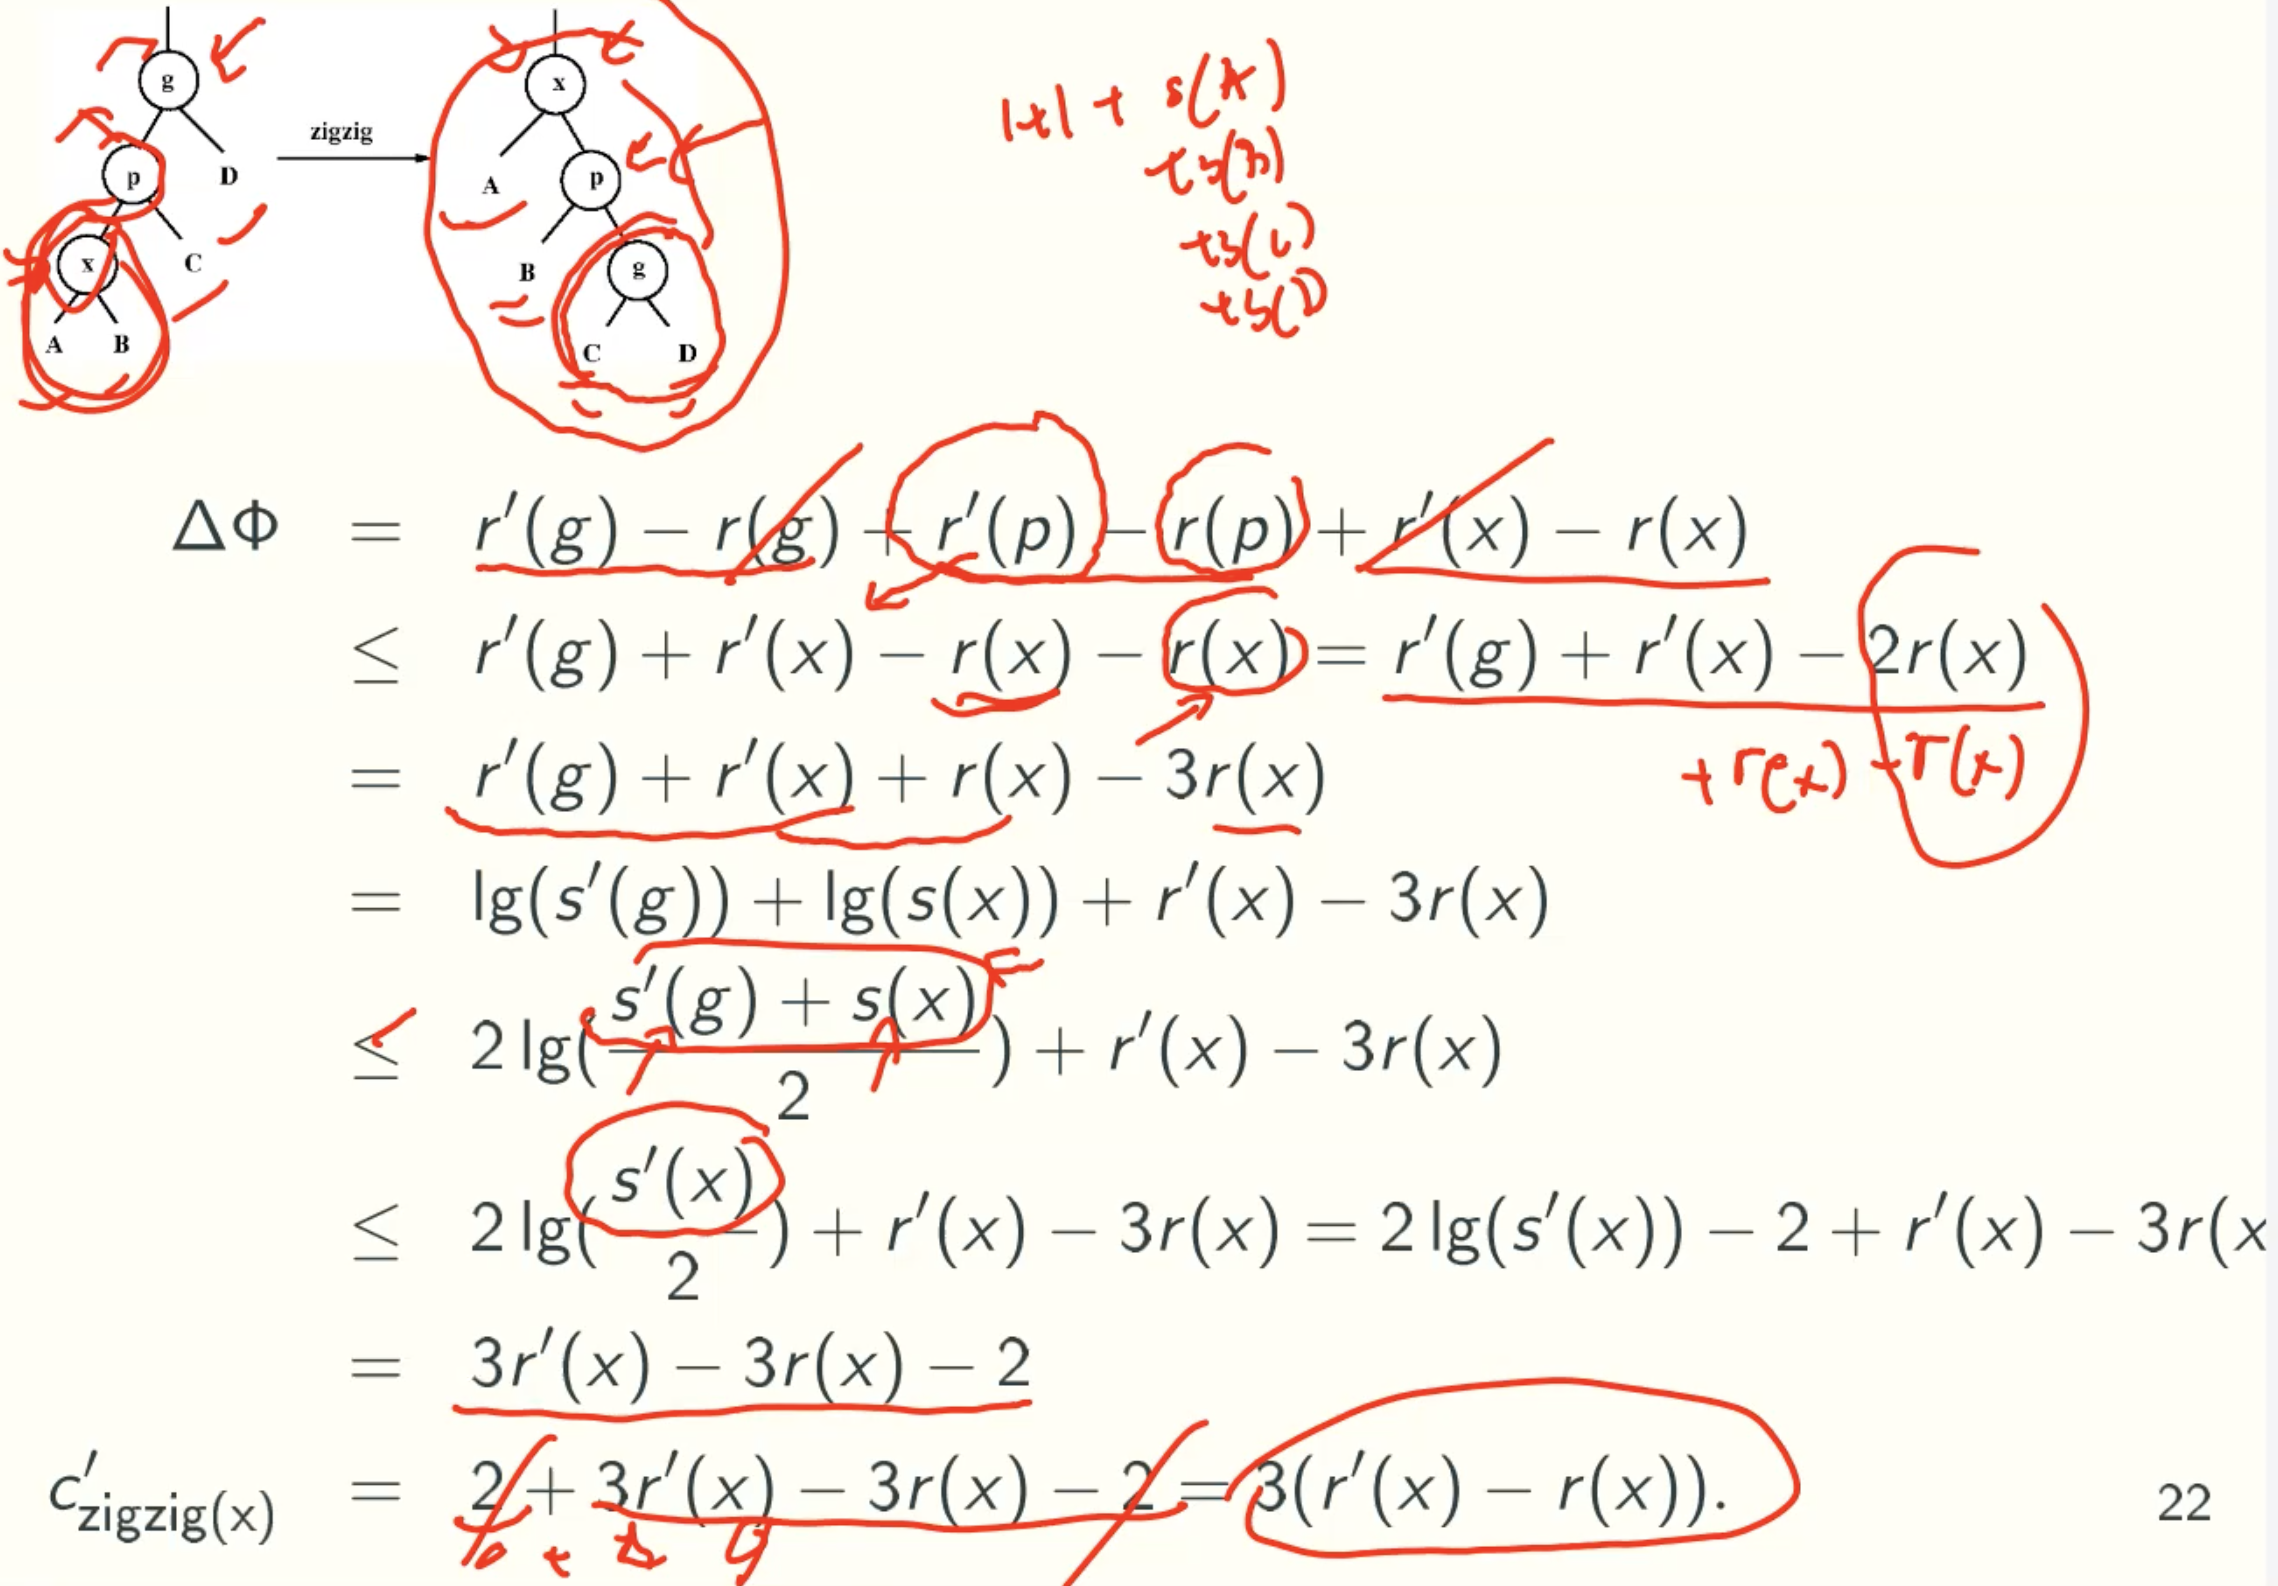 g
x
zigzig
p
D
A
p
x
C
B
g
A
B
C
D
|x| + s(A)
+s(B)
+s(C)
+s(D)
ΔΦ = r′(g) − r(g) + r′(p) − r(p) + r′(x) − r(x)
≤ r′(g) + r′(x) − r(x) − r(x) = r′(g) + r′(x) − 2r(x)
+ r(x) − r(x)
= r′(g) + r′(x) + r(x) − 3r(x)
= lg(s′(g)) + lg(s(x)) + r′(x) − 3r(x)
≤ 2 lg((s′(g) + s(x))/2) + r′(x) − 3r(x)
≤ 2 lg(s′(x)/2) + r′(x) − 3r(x) = 2 lg(s′(x)) − 2 + r′(x) − 3r(x
= 3r′(x) − 3r(x) − 2
c′zigzig(x) = 2 + 3r′(x) − 3r(x) − 2 = 3(r′(x) − r(x)).
22